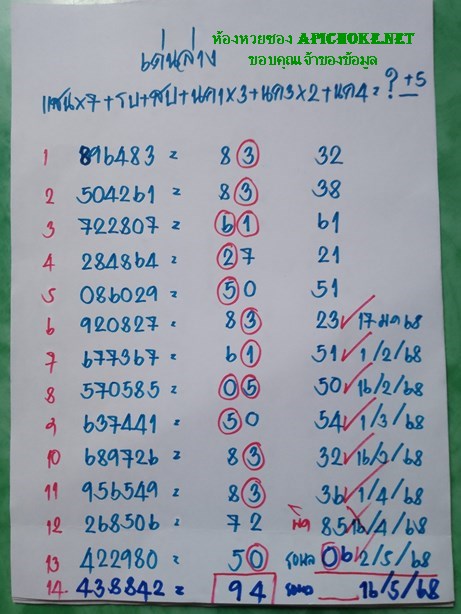 ห้องหวยซอง APICHOKE.NET
ขอบคุณเจ้าของข้อมูล
เด่นล่าง
แสนx7+รบ+สบ+นค1x3+นค3x2+นค4=?+5
1 896483 = 83 32
2 504261 = 83 38
3 722807 = 61 61
4 284864 = 27 21
5 086029 = 50 51
6 920827 = 83 23 ✓ 17 มค 68
7 677367 = 61 51 ✓ 1/2/68
8 570585 = 05 50 ✓ 16/2/68
9 637441 = 50 54 ✓ 1/3/68
10 689726 = 83 32 ✓ 16/3/68
11 956549 = 83 36 ✓ 1/4/68
12 268506 = 72 ผิด 85 16/4/68
13 422980 = 50 รอผล 06 2/5/68
14 438842 = 94 รอผล 16/5/68